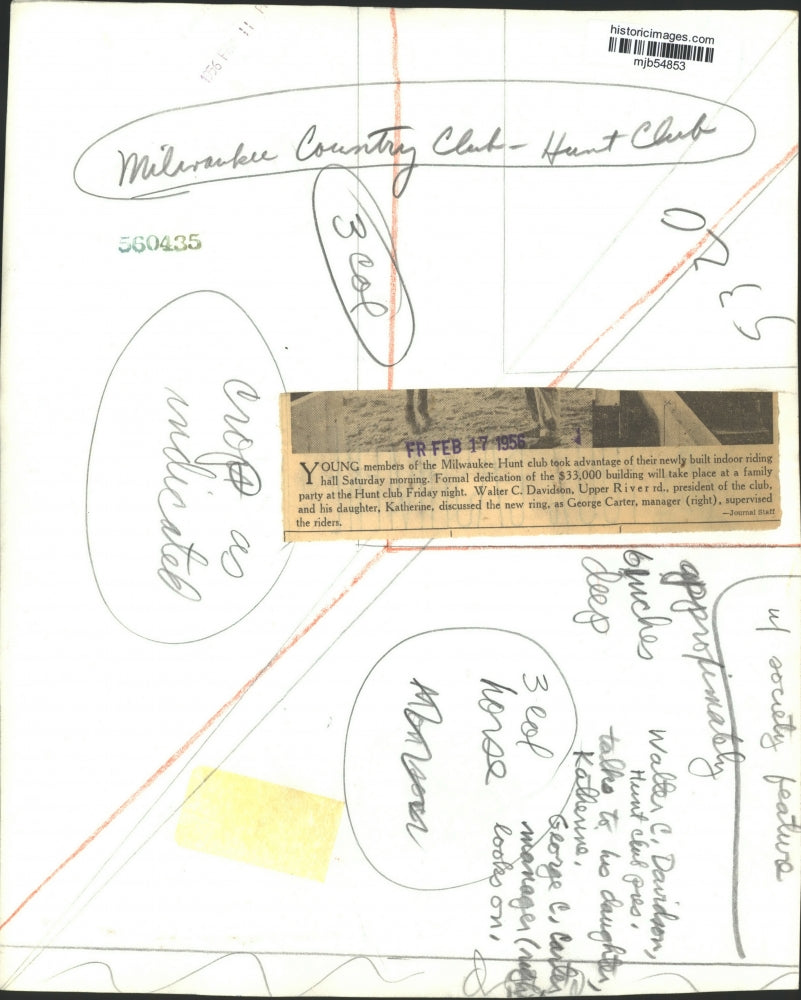 historicimages.com
mjb54853
Milwaukee Country Club - Hunt Club
560435
3 col
crop as
indicated
FR FEB 17 1956
YOUNG members of the Milwaukee Hunt club took advantage of their newly built indoor riding
hall Saturday morning. Formal dedication of the $33,000 building will take place at a family
party at the Hunt club Friday night. Walter C. Davidson, Upper River rd., president of the club,
and his daughter, Katherine, discussed the new ring, as George Carter, manager (right), supervised
the riders.
—Journal Staff
w/ society feature
approximately
6 inches
deep
Walter C. Davidson,
Hunt club pres.,
talks to his daughter,
Katherine.
George C. Carter
manager (right)
looks on.
3 col
horse